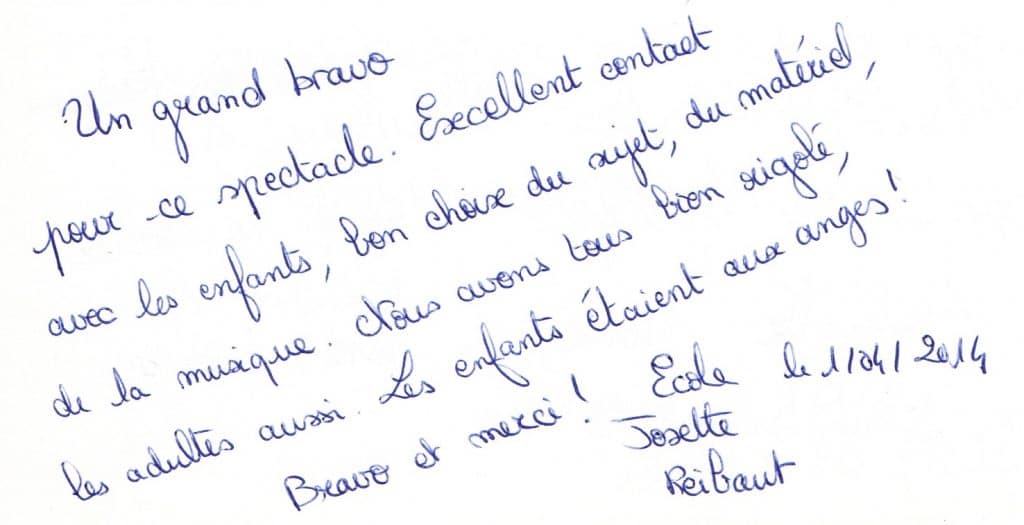 Un grand bravo
pour ce spectacle. Excellent contact
avec les enfants, bon choix du sujet, du matériel,
de la musique. Nous avons tous bien rigolé,
les adultes aussi. Les enfants étaient aux anges !
Bravo et merci !
Ecole le 1/04/2014
Josette
Reibaut